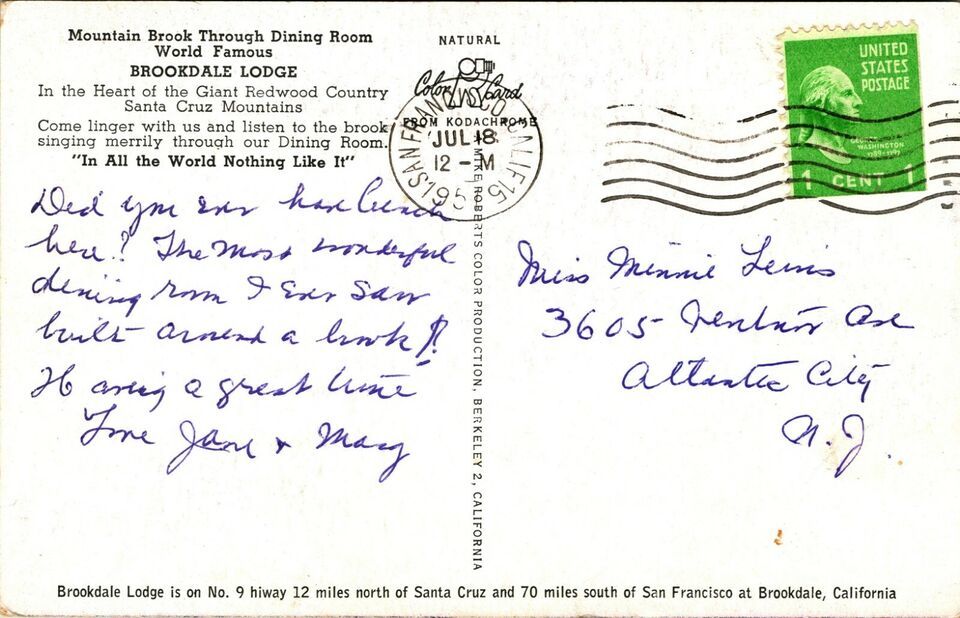 Mountain Brook Through Dining Room
World Famous
BROOKDALE LODGE
In the Heart of the Giant Redwood Country
Santa Cruz Mountains
Come linger with us and listen to the brook
singing merrily through our Dining Room.
"In All the World Nothing Like It"
Did you ever have lunch
here? The most wonderful
dining room I ever saw
built around a brook!!
Having a great time
Love Jane & Mary
NATURAL
Color Card
FROM KODACHROME
SAN FRANCISCO CALIF 15
JUL 18
12 - M
195
MIKE ROBERTS COLOR PRODUCTION. BERKELEY 2, CALIFORNIA
UNITED
STATES
POSTAGE
GEORGE
WASHINGTON
1789-1797
1 CENT 1
Miss Minnie Lewis
3605 Ventnor Ave
Atlantic City
N. J.
Brookdale Lodge is on No. 9 hiway 12 miles north of Santa Cruz and 70 miles south of San Francisco at Brookdale, California